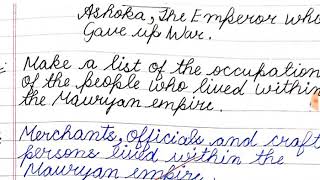 Ashoka, The Emperor who
Gave up War.
Make a list of the occupation
of the people who lived within
the Mauryan empire.
Merchants, officials and craft
persons lived within the
Mauryan empire.